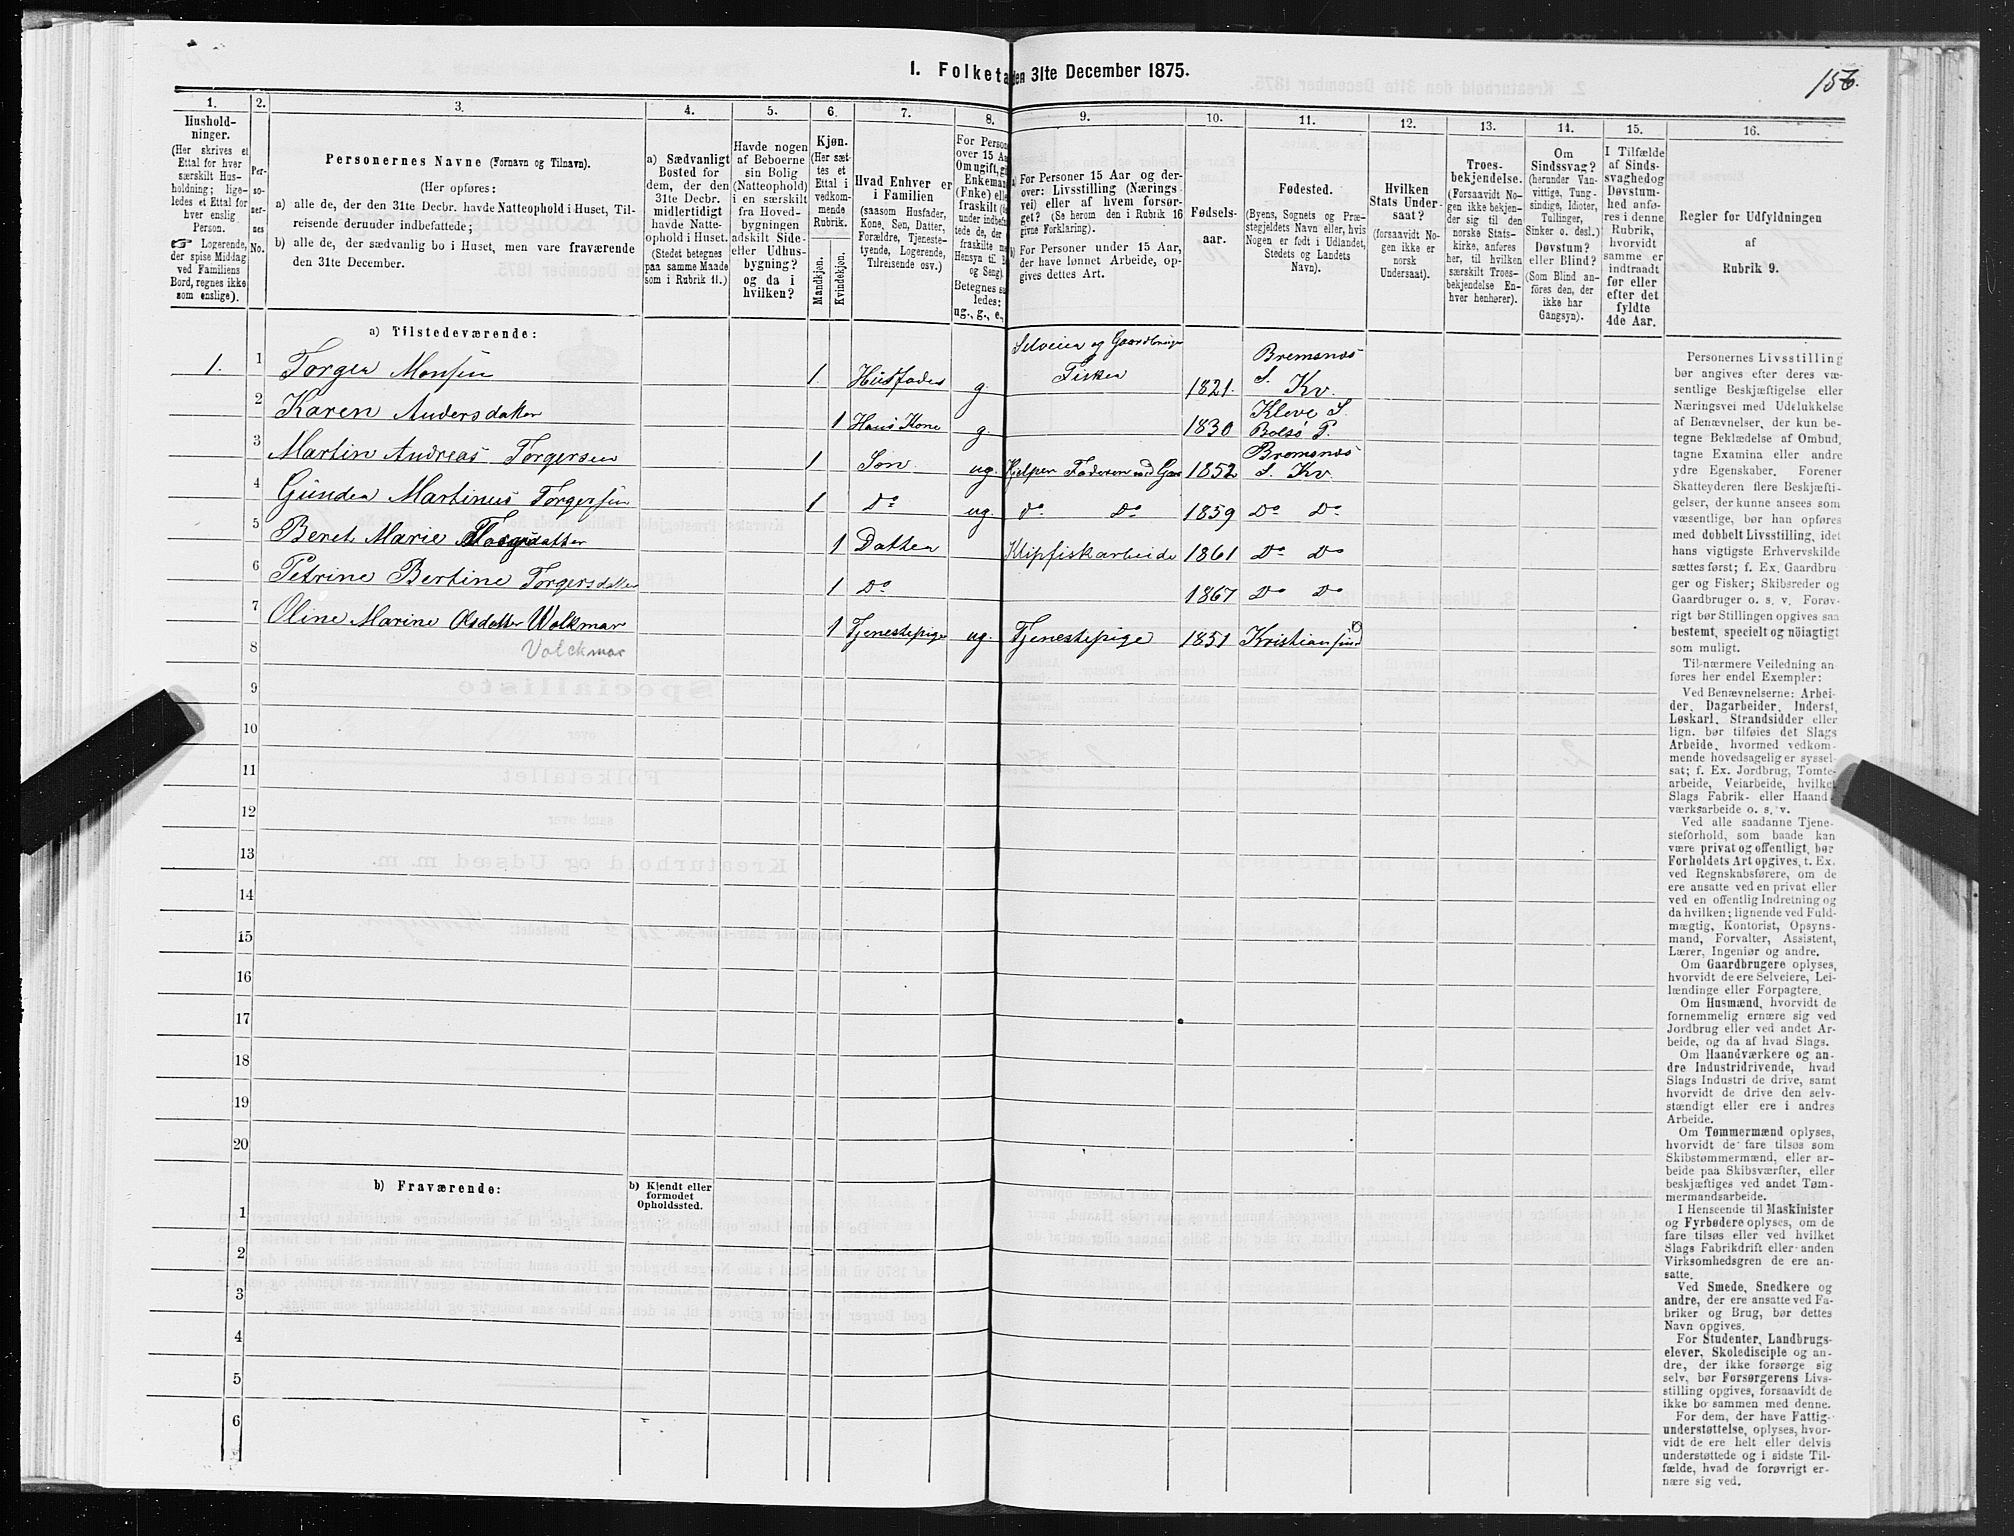 1. Folketa den 31te December 1875.
156.
1. 2. 3. 4. 5. 6. 7. 8. 9. 10. 11. 12. 13. 14. 15. 16.
Hushold-
ninger.
(Her skrives et
Ettal for hver
særskilt Hus-
holdning; lige-
ledes et Ettal for
hver enslig
Person.
☞ Logerende,
der spise Middag
ved Familiens
Bord, regnes ikke
som enslige).
Per-
so-
ner-
nes
No.
Personernes Navne (Fornavn og Tilnavn).
(Her opføres:
a) alle de, der den 31te Decbr. havde Natteophold i Huset, Til-
reisende derunder indbefattede;
b) alle de, der sædvanlig bo i Huset, men vare fraværende
den 31te December.
a) Sædvanligt
Bosted for
dem, der den
31te Decbr.
midlertidigt
havde Natte-
ophold i Huset.
(Stedet betegnes
paa samme Maade
som i Rubrik 11.)
Havde nogen
af Beboerne
sin Bolig
(Natteophold)
i en særskilt
fra Hoved-
bygningen
adskilt Side-
eller Udhus-
bygning?
og da i
hvilken?
Kjøn.
(Her sæt-
tes et
Ettal i
vedkom-
mende
Rubrik.
Mandkjøn.
Kvindekjøn.
Hvad Enhver er
i Familien
(saasom Husfader,
Kone, Søn, Datter,
Forældre, Tjeneste-
tyende, Logerende,
Tilreisende osv.)
For Person
over 15 Aa
Om ugift, gi
Enkeman
(Fnke) elle
fraskilt (d
under indbefa
tede de, der
fraskilte m
Hensyn til B
og Seng).
Betegnes så
ledes:
ug., g., e.,
a) For Personer 15 Aar og der-
over: Livsstilling (Nærings
vei) eller af hvem forsør-
get? (Se herom den i Rubrik 16
givne Forklaring).
b) For Personer under 15 Aar,
der have lønnet Arbeide, op-
gives dettes Art.
Fødsels-
aar.
Fødested.
(Byens, Sognets og Præ-
stegjeldets Navn eller, hvis
Nogen er født i Udlandet,
Stedets og Landets
Navn).
Hvilken
Stats Under-
saat?
(forsaavidt No-
gen ikke er
norsk
Undersaat).
Troes-
bekjendelse.
(Forsaavidt No-
gen ikke bekjen-
der sig til den
norske Stats-
kirke, anføres
her, til hvilken
særskilt Troes-
bekjendelse En-
hver henhører).
Om
Sindssvag?
(herunder Van-
vittige, Tung-
sindige, Idioter,
Tullinger,
Sinker o. desl.)
Døvstum?
eller Blind?
(Som Blind an-
føres den, der
ikke har
Gangsyn).
I Tilfælde
af Sinds-
svaghed og
Døvstum-
hed anfø-
res i denne
Rubrik,
hvorvidt
samme er
indtraadt
før eller
efter det
fyldte
4de Aar.
Regler for Udfyldningen
af
Rubrik 9.
a) Tilstedeværende:
Selveier og Gaardbruger Bremsnes
1. 1 Torger Monsen 1. Husfader g. Fisker 1821. S. Kv.
Kleve S.
2 Karen Andersdatter 1 Hans Kone g. 1830 Bolsø P.
Bremsnes
3 Martin Andreas Torgersen 1 Søn ug. Hjelper Faderen med Gaar 1852 S. Kv.
4 Gunder Martinus Torgersen 1 Do ug. Do Do 1859 Do Do
5 Beret Marie Torgersdatter 1 Datter Klipfiskarbeide 1861 Do Do
6 Petrine Bertine Torgersdatter 1 Do 1867 Do Do
7 Oline Marine Olsdatter Wolkmar 1 Tjenestepige ug. Tjenestepige 1851 Kristiansund
8 Volckmar
9
10
11
12
13
14
15
16
17
18
19
20
b) Fraværende:
b) Kjendt eller
formodet
Opholdssted.
1
2
3
4
5
6
Personernes Livsstilling
bør angives efter deres væ-
sentlige Beskjæftigelse eller
Næringsvei med Udelukkelse
af Benævnelser, der kun be-
tegne Beklædelse af Ombud,
tagne Examina eller andre
ydre Egenskaber. Forener
Skatteyderen flere Beskjæfti-
gelser, der kunne ansees som
væsentlige, bør han opføres
med dobbelt Livsstilling, idet
hans vigtigste Erhvervskilde
sættes først; f. Ex. Gaardbru-
ger og Fisker; Skibsreder og
Gaardbruger o. s. v. Forøv-
rigt bør Stillingen opgives saa
bestemt, specielt og nöiagtigt
som muligt.
Til nærmere Veiledning an
føres her endel Exempler:
Ved Benævnelserne: Arbei-
der, Dagarbeider, Inderst,
Løskarl, Strandsidder eller
lign. bør tilføies det Slags
Arbeide, hvormed vedkom-
mende hovedsagelig er syssel-
sat; f. Ex. Jordbrug, Tomte-
arbeide, Veiarbeide, hvilket
Slags Fabrik- eller Haand-
værksarbeide o. s. v.
Ved alle saadanne Tjene-
steforhold, som baade kan
være privat og offentligt, bør
Forholdets Art opgives, t. Ex.
ved Regnskabsførere, om de
ere ansatte ved en privat eller
ved en offentlig Indretning og
da hvilken; lignende ved Fuld-
mægtig, Kontorist, Opsyns-
mand, Forvalter, Assistent,
Lærer, Ingeniør og andre.
Om Gaardbrugere oplyses,
hvorvidt de ere Selveiere, Lei-
lændinge eller Forpagtere.
Om Husmænd, hvorvidt de
fornemmelig ernære sig ved
Jordbrug eller ved andet Ar-
beide, og da af hvad Slags.
Om Haandværkere og an-
dre Industridrivende, hvad
Slags Industri de drive, samt
hvorvidt de drive den selv-
stændigt eller ere i andres
Arbeide.
Om Tømmermænd oplyses,
hvorvidt de fare tilsøs som
Skibstømmermænd, eller ar-
beide paa Skibsværfter, eller
beskjæftiges ved andet Tøm-
mermandsarbeide.
I Henseende til Maskinister
og Fyrbødere oplyses, om de
fare tilsøs eller ved hvilket
Slags Fabrikdrift eller anden
Virksomhedsgren de ere an-
satte.
Ved Smede, Snedkere og
andre, der ere ansatte ved Fa-
briker og Brug, bør dettes
Navn opgives.
For Studenter, Landbrugs-
elever, Skoledisciple og an-
dre, der ikke forsørge sig
selv, bør Forsørgerens Livs-
stilling opgives, forsaavidt de
ikke bo sammen med denne.
For dem, der have Fattig-
understøttelse, oplyses, hvor-
vidt de ere helt eller delvis
understøttede og i sidste Til-
fælde, hvad de forøvrigt er-
nære sig ved.